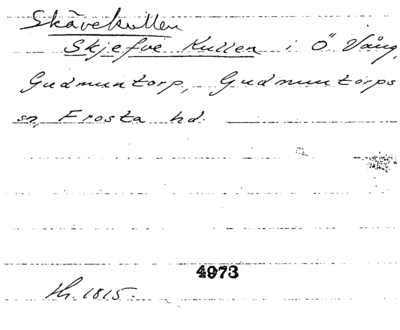 Skävekullen
Skjefve Kullen i Ö Vång,
Gudmuntorp, Gudmuntorps
sn, Frosta hd.
4973
1815.